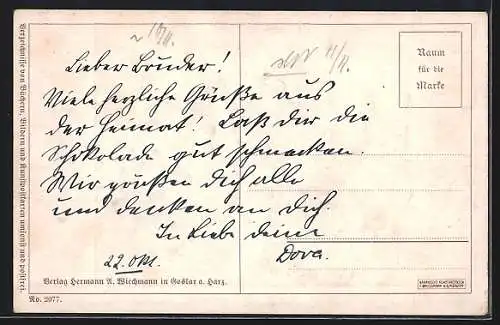 Lieber Bruder!
Viele herzliche Grüße aus
der Heimat! Laß dir die
Schokolade gut schmecken.
Wir grüßen dich alle
und denken an dich.
In Liebe deine
Dora.
22. Okt.
Raum
für die
Marke
Verlag Hermann A. Wiechmann in Goslar a. Harz.
No. 2077.
Verzeichnisse von Büchern, Bildern und Kunstpostkarten umsonst und postfrei.